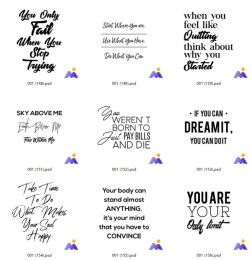 You Only
Fail
When You
Stop
Trying
001 (148).psd
Start Where You are.
Use What You Have.
Do What You Can
001 (149).psd
when you
feel like
Quitting
think about
why you
Started
001 (150).psd
SKY ABOVE ME
Earth Below Me
Fire Within Me
001 (151).psd
You
WEREN'T
BORN TO
Just PAY BILLS
AND DIE
001 (152).psd
• IF YOU CAN •
DREAM IT,
YOU CAN DO IT
001 (153).psd
Take Time
To Do
What Makes
Your Soul
Happy
001 (154).psd
Your body can
stand almost
ANYTHING.
it's your mind
that you have to
CONVINCE
001 (155).psd
YOU ARE
YOUR
Only limit
001 (156).psd